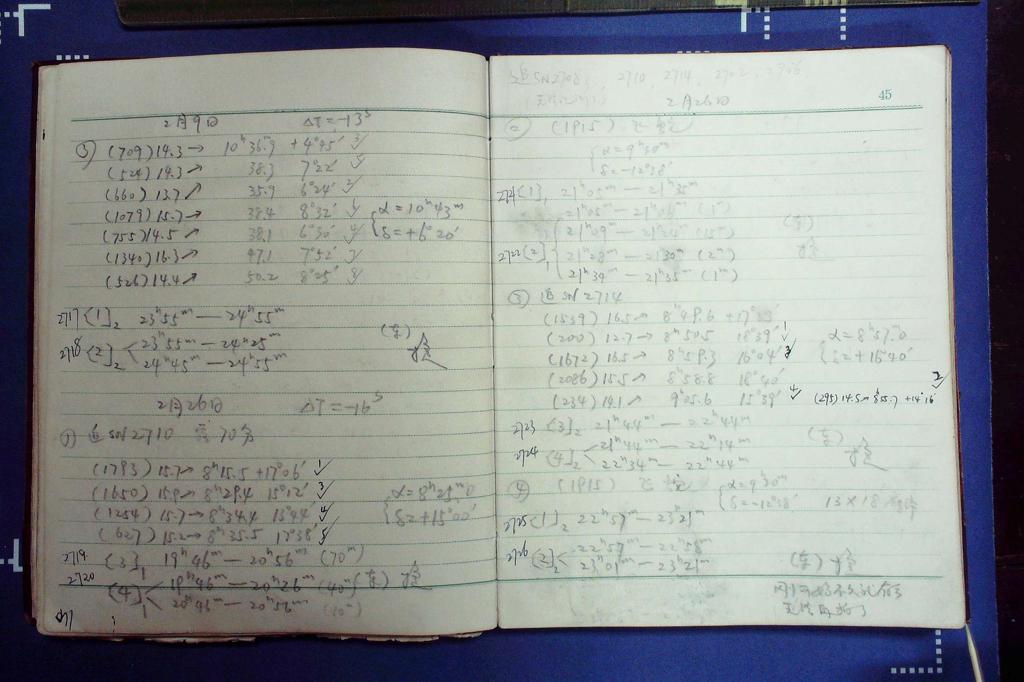 2月9日 ΔT=-13ˢ
③ (709)14.3→ 10ʰ36.9ᵐ +4°45′
(524)14.3↗ 38.3 7°22′
(660)13.7↗ 35.9 6°24′
(1079)15.7→ 38.4 8°32′ { α=10ʰ43ᵐ
(755)14.5↗ 38.1 6°30′ δ=+6°20′
(1340)16.3→ 47.1 7°52′
(526)14.4↗ 50.2 8°25′
2717 {1}₂ 23ʰ55ᵐ—24ʰ55ᵐ
2718 {2}₂ < 23ʰ55ᵐ—24ʰ25ᵐ
24ʰ45ᵐ—24ʰ55ᵐ
2月26日 ΔT=-16ˢ
① 追SN2710 露70分
(1783)15.7→ 8ʰ15.5 +17°06′ ✓1
(1650)15.9→ 8ʰ29.4 15°12′ ✓3
(1254)15.7→ 8ʰ34.4 13°44′ ✓4 { α=8ʰ25ᵐ.0
(627)15.2→ 8ʰ35.5 17°38′ ✓5 δ=+15°00′
2719 {3}₁ 19ʰ46ᵐ—20ʰ56ᵐ (70ᵐ)
2720 {4}₁ < 19ʰ46ᵐ—20ʰ26ᵐ (40ᵐ)
20ʰ46ᵐ—20ʰ56ᵐ (10ᵐ)
追SN2708, 2710, 2714, 2702,
2月26日 45
② (1915)
{ α=9ʰ30ᵐ
δ=-12°38′
2721 {1}₁ 21ʰ05ᵐ—21ʰ35ᵐ
21ʰ05ᵐ—21ʰ06ᵐ (1ᵐ)
21ʰ09ᵐ—21ʰ24ᵐ (15ᵐ)
2722 {2}₁ 21ʰ28ᵐ—21ʰ30ᵐ (2ᵐ)
21ʰ34ᵐ—21ʰ35ᵐ (1ᵐ)
③ 追SN2714
(1539)16.5→ 8ʰ49.6 +17°33′
(200)12.7→ 8ʰ50.5 18°39′ ✓1 α=8ʰ57.0
(1672)16.5→ 8ʰ59.3 16°04′ ✓3 { δ=+16°40′
(2086)15.5↗ 8ʰ58.8 18°40′
(234)14.1↗ 9ʰ05.6 15°39′ ✓4 (295)14.5→8ʰ55.7 +14°16′ ✓2
2723 {3}₂ 21ʰ44ᵐ—22ʰ44ᵐ
2724 {4}₂ < 21ʰ44ᵐ—22ʰ14ᵐ
22ʰ34ᵐ—22ʰ44ᵐ
④ (1915) { α=9ʰ30ᵐ
δ=-12°38′ 13×18
2725 {1}₂ 22ʰ57ᵐ—23ʰ21ᵐ
2726 {2}₂ < 22ʰ57ᵐ—22ʰ58ᵐ
23ʰ01ᵐ—23ʰ21ᵐ